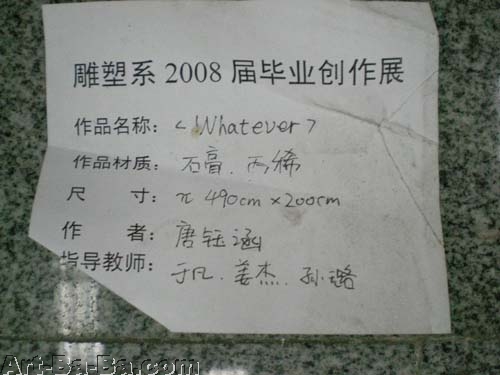 雕塑系2008届毕业创作展
作品名称：<Whatever>
作品材质：石膏.丙稀
尺 寸：π 490cm×200cm
作 者：唐钰涵
指导教师：于凡.姜杰.孙璐
Art-Ba-Ba.com
Art-Ba-Ba.com